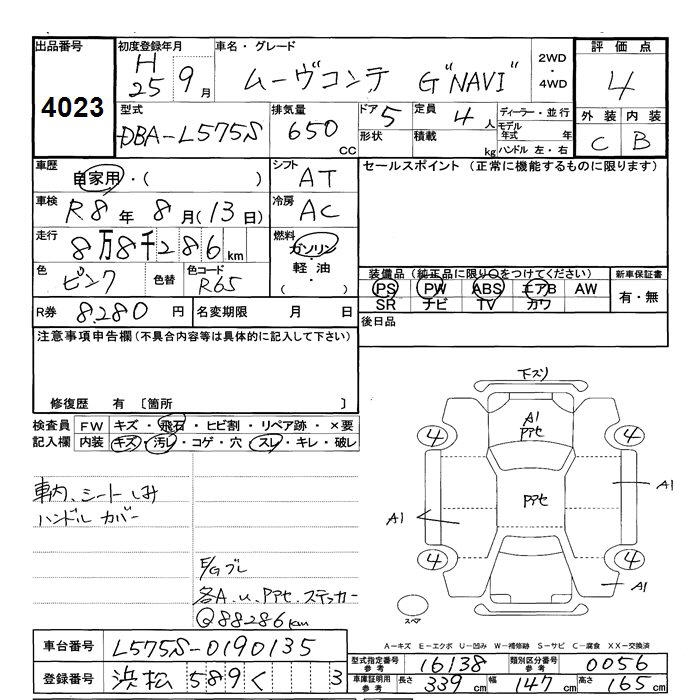 出品番号
4023
初度登録年月
H 25 9月
車名・グレード
ムーヴコンテ G"NAVI"
2WD・4WD
評価点
4
型式
DBA-L575S
排気量
650 CC
ドア 5
形状
定員 4人
積載 kg
ディーラー・並行
モデル年式 年
ハンドル 左・右
外装 内装
C B
車歴
自家用・( )
シフト
AT
セールスポイント (正常に機能するものに限ります)
車検
R8年 8月(13日)
冷房
AC
走行
8万8千286km
燃料
ガソリン・軽油・( )
色
ピンク
色替
色コード
R65
装備品(純正品に限り○をつけてください)
PS PW ABS エアB AW
SR ナビ TV カワ
新車保証書
有・無
R券 8,280 円
名変期限 月 日
後日品
注意事項申告欄(不具合内容等は具体的に記入して下さい)
修復歴 有 〔箇所 〕
検査員記入欄
FW キズ・飛石・ヒビ割・リペア跡・×要
内装 キズ・汚レ・コゲ・穴・スレ・キレ・破レ
車内、シートしみ
ハンドル カバー
E/Gブレ
各A.u.Pアセ.ステッカー
Q88286km
下スリ
A1
Pアセ
4
4
Pアセ
A1
A1
4
4
A1
スペア
A-キズ E-エクボ U-凹み W-補修跡 S-サビ C-腐食 XX-交換済
車台番号
L575S-0190135
登録番号
浜松 589 く 3
型式指定番号 参考
16138
類別区分番号 参考
0056
車庫証明用 参考
長さ 339cm 幅 147cm 高さ 165cm